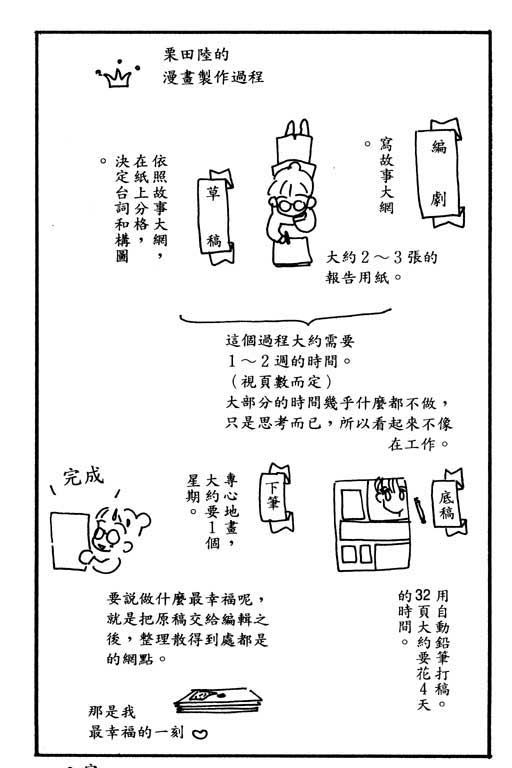 栗田陸的
漫畫製作過程
編劇
寫故事大綱
。
大約2～3張的
報告用紙。
草稿
依照故事大綱，
在紙上分格，
決定台詞和構圖
。
這個過程大約需要
1～2週的時間。
（視頁數而定）
大部分的時間幾乎什麼都不做，
只是思考而已，所以看起來不像
在工作。
底稿
用自動鉛筆打稿。
32頁大約要花4天
的時間。
下筆
專心地畫，
大約要1個
星期。
完成
要說做什麼最幸福呢，
就是把原稿交給編輯之
後，整理散得到處都是
的網點。
那是我
最幸福的一刻